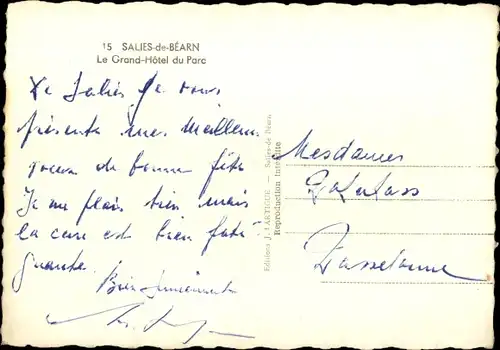 15 SALIES-de-BÉARN
Le Grand-Hôtel du Parc
De Salies je vous
présente mes meilleurs
voeux de bonne fête
Je me plais bien mais
la cure est bien fati
guante.
Bien sincèrement
Editions J. LARTIGUE — Salies-de-Béarn
Reproduction interdite
Mesdames